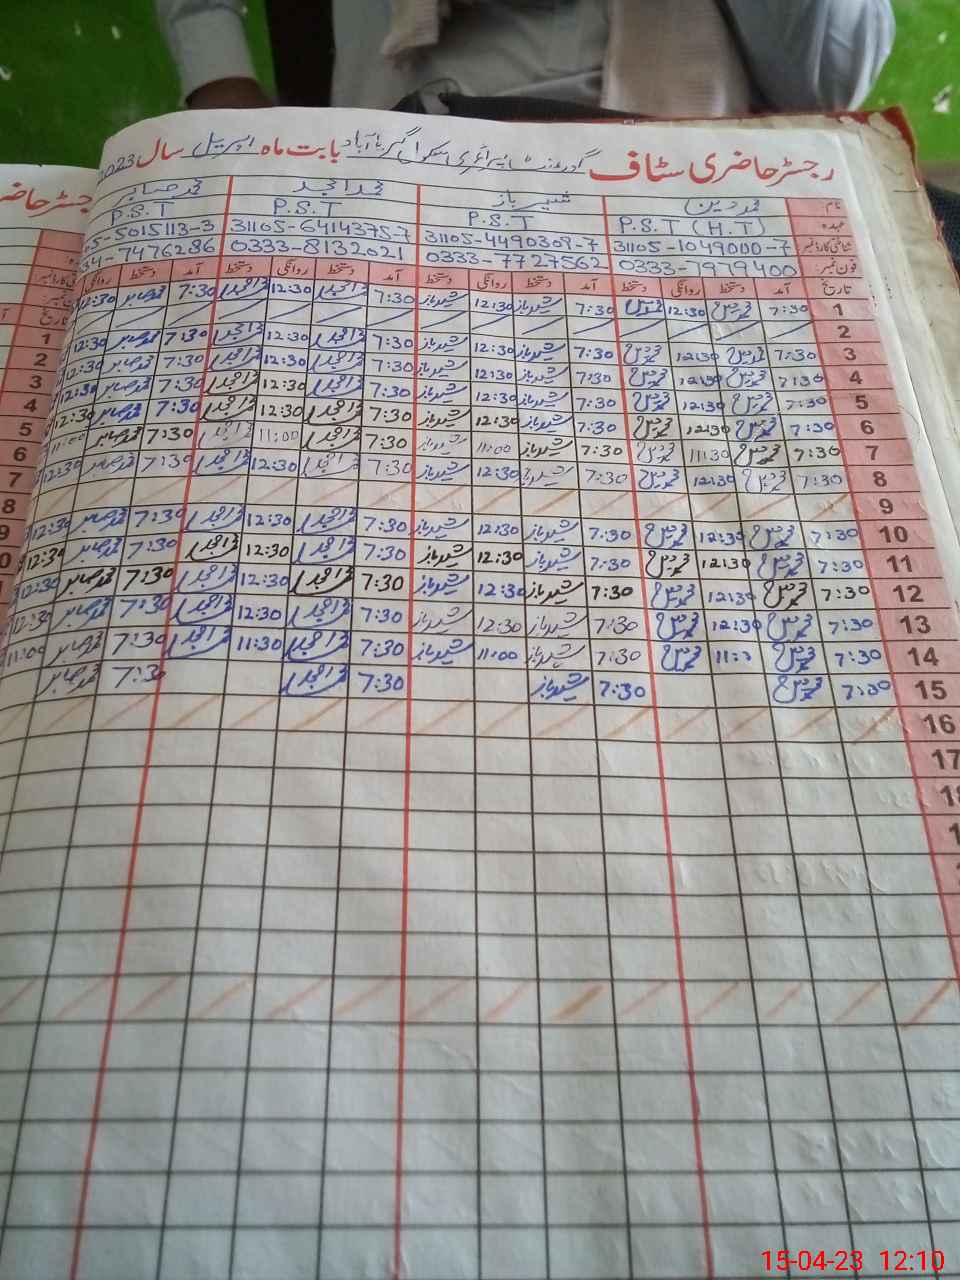 رجسٹر حاضری سٹاف گورنمنٹ پرائمری سکول بابت ماہ اپریل سال 2023
نام محمد دین شہباز محمد امجد محمد صابر
عہدہ P.S.T (H.T) P.S.T P.S.T P.S.T
شناختی کارڈ نمبر 31105-1049000-7 31105-4490309-7 31105-6414375-7 5-5015113-3
فون نمبر 0333-7979400 0333-7727562 0333-8132021 34-7476286
تاریخ آمد دستخط روانگی دستخط آمد دستخط روانگی دستخط آمد دستخط روانگی دستخط آمد دستخط روانگی
1 7:30 محمد دین 12:30 محمد دین 7:30 شہباز 12:30 شہباز 7:30 محمد امجد 12:30 محمد امجد 7:30 محمد صابر 12:30
2
3 7:30 محمد دین 12:30 محمد دین 7:30 شہباز 12:30 شہباز 7:30 محمد امجد 12:30 محمد امجد 7:30 محمد صابر 12:30
4 7:30 محمد دین 12:30 محمد دین 7:30 شہباز 12:30 شہباز 7:30 محمد امجد 12:30 محمد امجد 7:30 محمد صابر 12:30
5 7:30 محمد دین 12:30 محمد دین 7:30 شہباز 12:30 شہباز 7:30 محمد امجد 12:30 محمد امجد 7:30 محمد صابر 12:30
6 7:30 محمد دین 12:30 محمد دین 7:30 شہباز 12:30 شہباز 7:30 محمد امجد 12:30 محمد امجد 7:30 محمد صابر 12:30
7 7:30 محمد دین 11:30 محمد دین 7:30 شہباز 11:00 شہباز 7:30 محمد امجد 11:00 محمد امجد 7:30 محمد صابر 11:00
8 7:30 محمد دین 12:30 محمد دین 7:30 شہباز 12:30 شہباز 7:30 محمد امجد 12:30 محمد امجد 7:30 محمد صابر 12:30
9
10 7:30 محمد دین 12:30 محمد دین 7:30 شہباز 12:30 شہباز 7:30 محمد امجد 12:30 محمد امجد 7:30 محمد صابر 12:30
11 7:30 محمد دین 12:30 محمد دین 7:30 شہباز 12:30 شہباز 7:30 محمد امجد 12:30 محمد امجد 7:30 محمد صابر 12:30
12 7:30 محمد دین 12:30 محمد دین 7:30 شہباز 12:30 شہباز 7:30 محمد امجد 12:30 محمد امجد 7:30 محمد صابر 12:30
13 7:30 محمد دین 12:30 محمد دین 7:30 شہباز 12:30 شہباز 7:30 محمد امجد 12:30 محمد امجد 7:30 محمد صابر 12:30
14 7:30 محمد دین 11: محمد دین 7:30 شہباز 11:00 شہباز 7:30 محمد امجد 11:30 محمد امجد 7:30 محمد صابر 11:00
15 7:30 محمد دین 7:30 شہباز 7:30 محمد امجد 7:30 محمد صابر
16
17
15-04-23 12:10